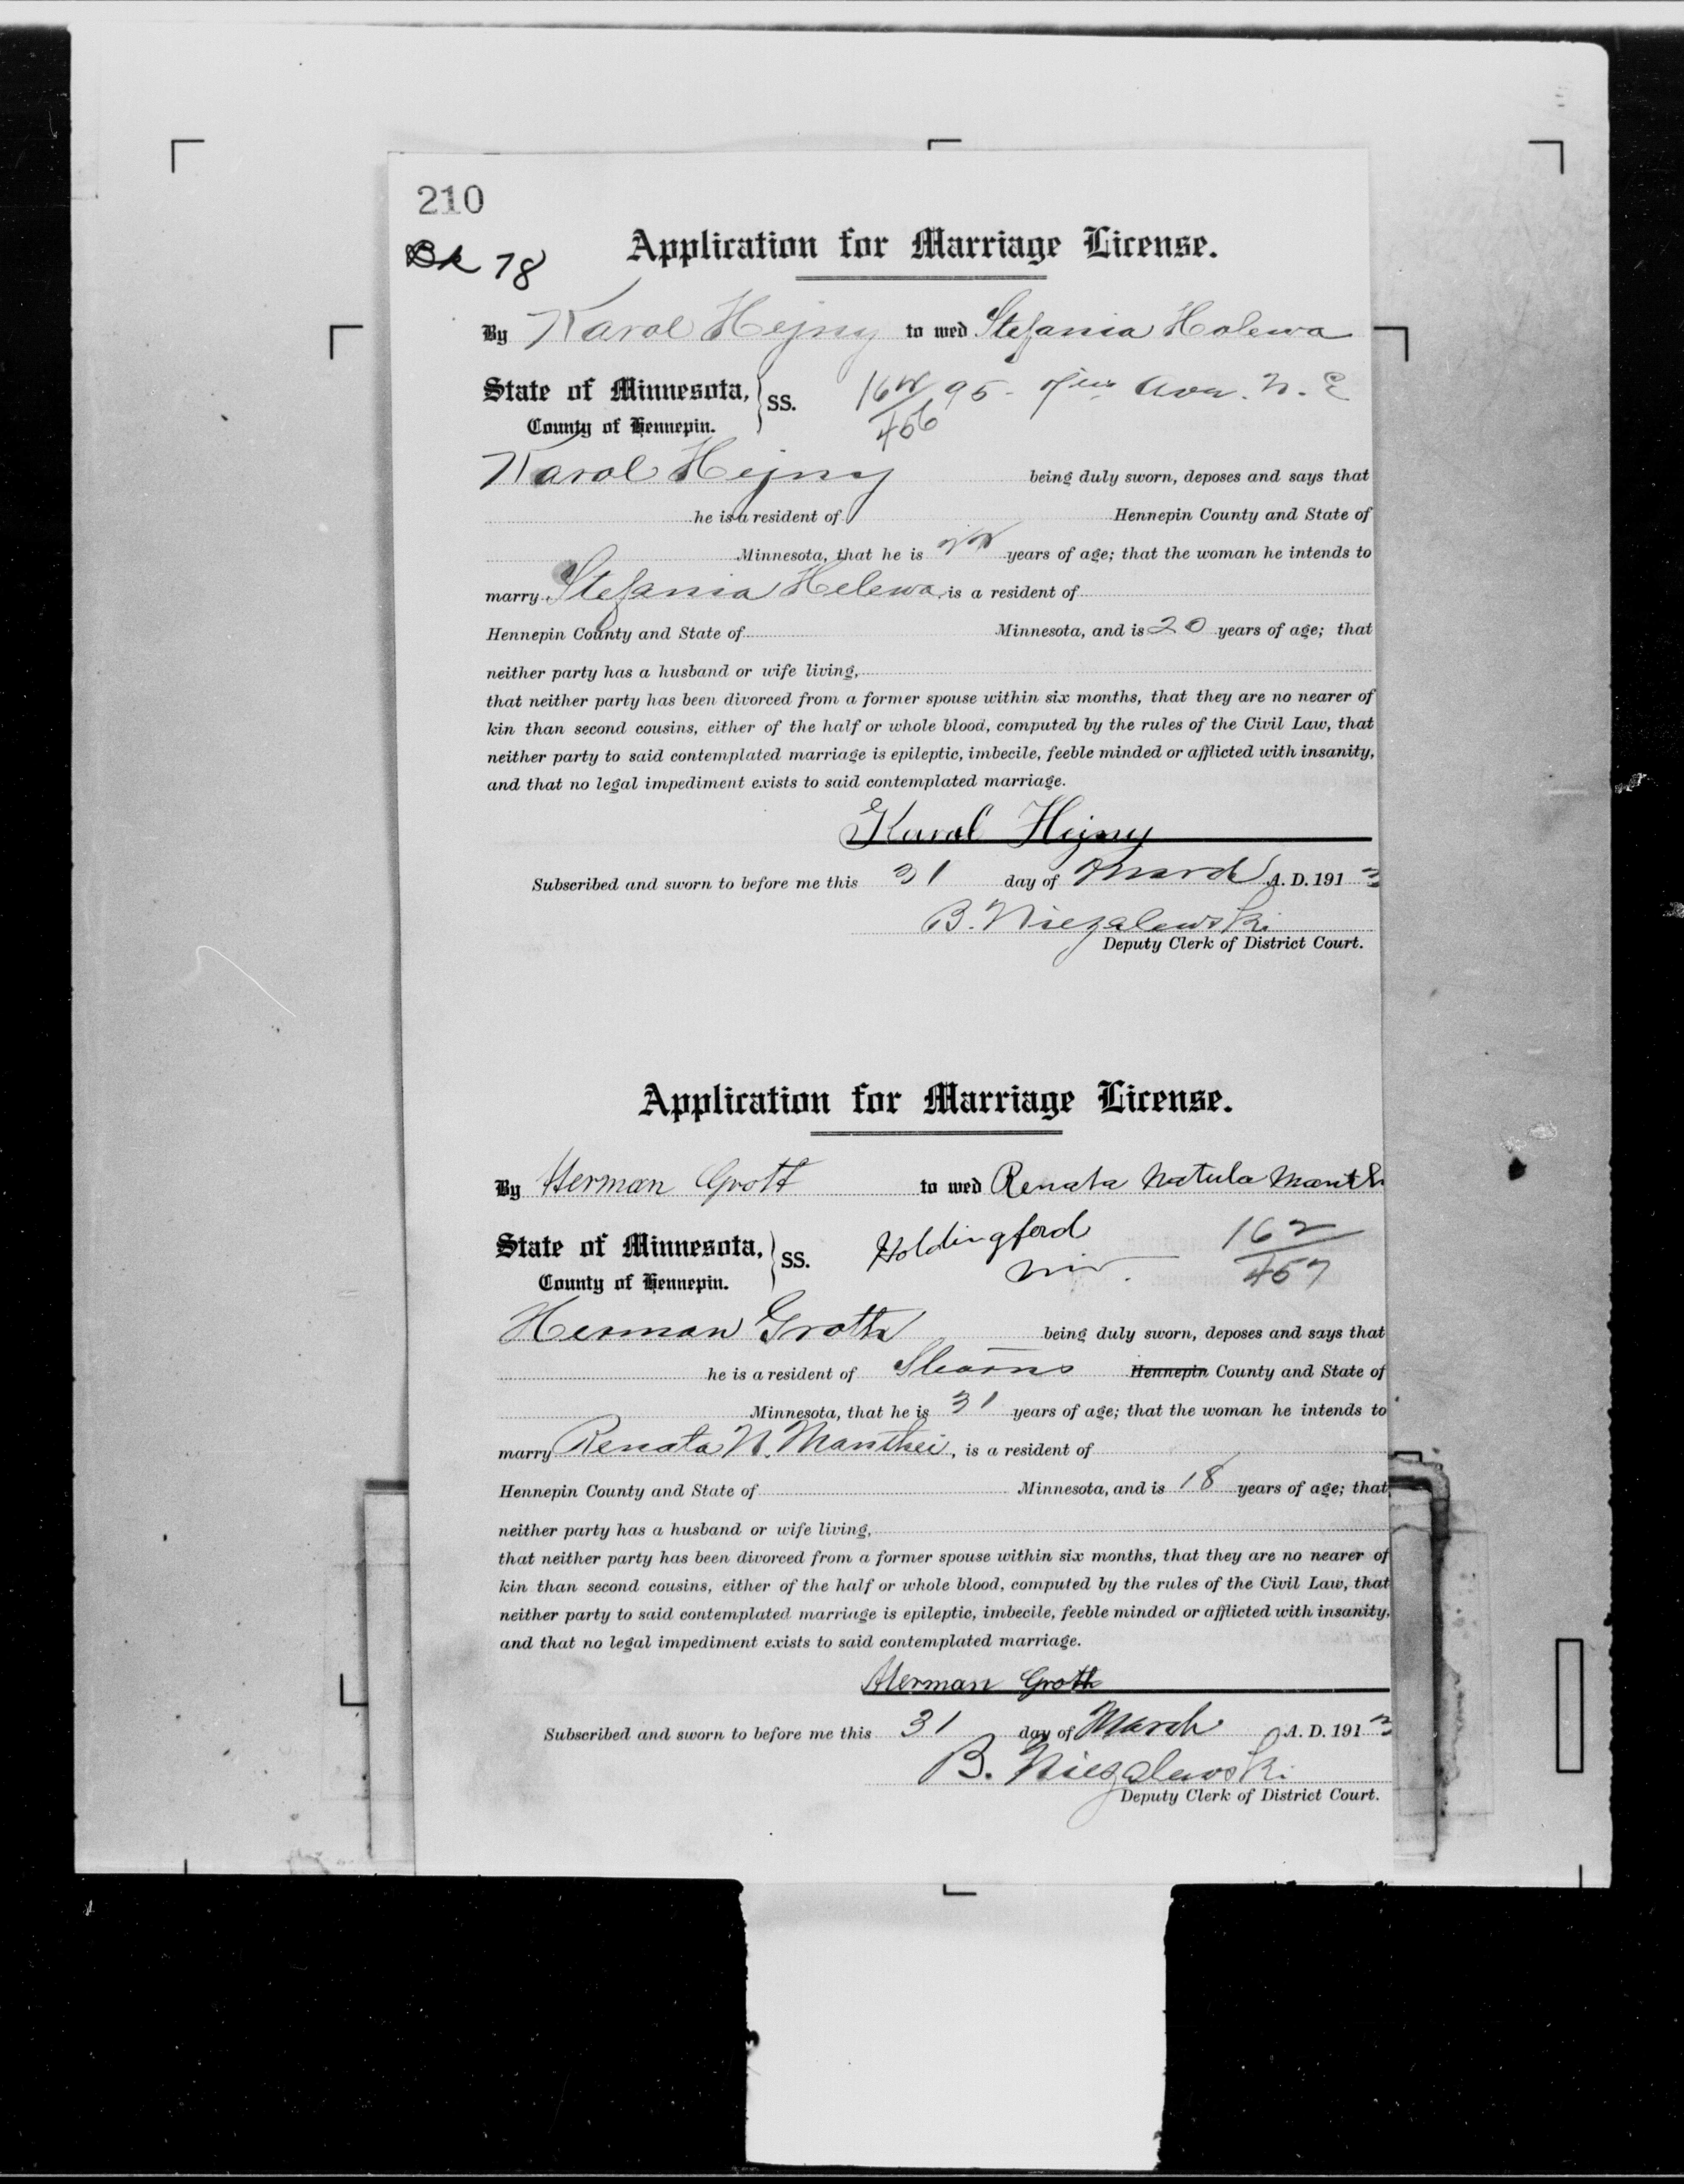 210
Bk 78
Application for Marriage License.
By Karol Hejny to wed Stefania Holewa
State of Minnesota,
County of Hennepin. } SS.
162 95 - Ave. N. E
456
Karol Hejny being duly sworn, deposes and says that
he is a resident of Hennepin County and State of
Minnesota, that he is years of age; that the woman he intends to
marry Stefania Helewa, is a resident of
Hennepin County and State of Minnesota, and is 20 years of age; that
neither party has a husband or wife living,
that neither party has been divorced from a former spouse within six months, that they are no nearer of
kin than second cousins, either of the half or whole blood, computed by the rules of the Civil Law, that
neither party to said contemplated marriage is epileptic, imbecile, feeble minded or afflicted with insanity,
and that no legal impediment exists to said contemplated marriage.
Karol Hejny
Subscribed and sworn to before me this 31 day of March A. D. 1913
B. Niezalewski
Deputy Clerk of District Court.
Application for Marriage License.
By Herman Groth to wed Renata Natula Manth
State of Minnesota,
County of Hennepin. } SS.
Holdingford 162
457
Herman Groth being duly sworn, deposes and says that
he is a resident of Stearns Hennepin County and State of
Minnesota, that he is 31 years of age; that the woman he intends to
marry Renata N. Manthei, is a resident of
Hennepin County and State of Minnesota, and is 18 years of age; that
neither party has a husband or wife living,
that neither party has been divorced from a former spouse within six months, that they are no nearer of
kin than second cousins, either of the half or whole blood, computed by the rules of the Civil Law, that
neither party to said contemplated marriage is epileptic, imbecile, feeble minded or afflicted with insanity,
and that no legal impediment exists to said contemplated marriage.
Herman Groth
Subscribed and sworn to before me this 31 day of March A. D. 1913
B. Niezalewski
Deputy Clerk of District Court.